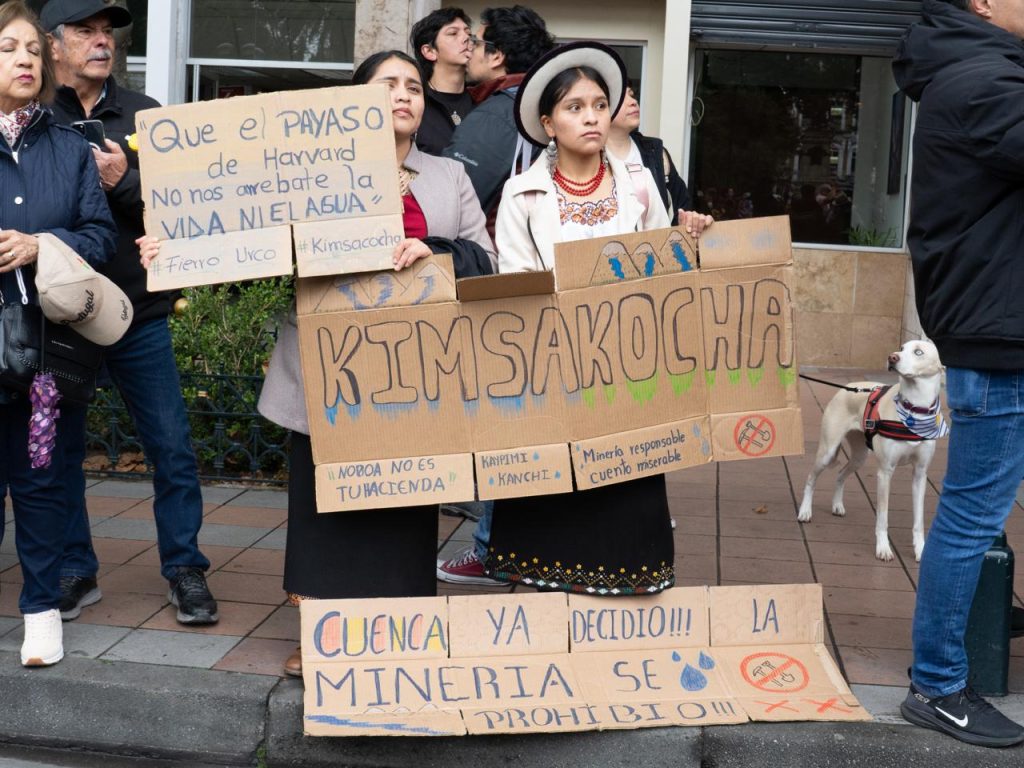 "Que el PAYASO
de Harvard
NO nos arrebate la
VIDA NI EL AGUA"
#Fierro Urco
#Kimsacocha
KIMSAKOCHA
"NOBOA NO ES
TU HACIENDA"
KAYPIMI
KANCHI
Minería responsable
cuento miserable
CUENCA YA DECIDIO!!! LA
MINERIA SE
PROHÍBIO!!!
Portugal